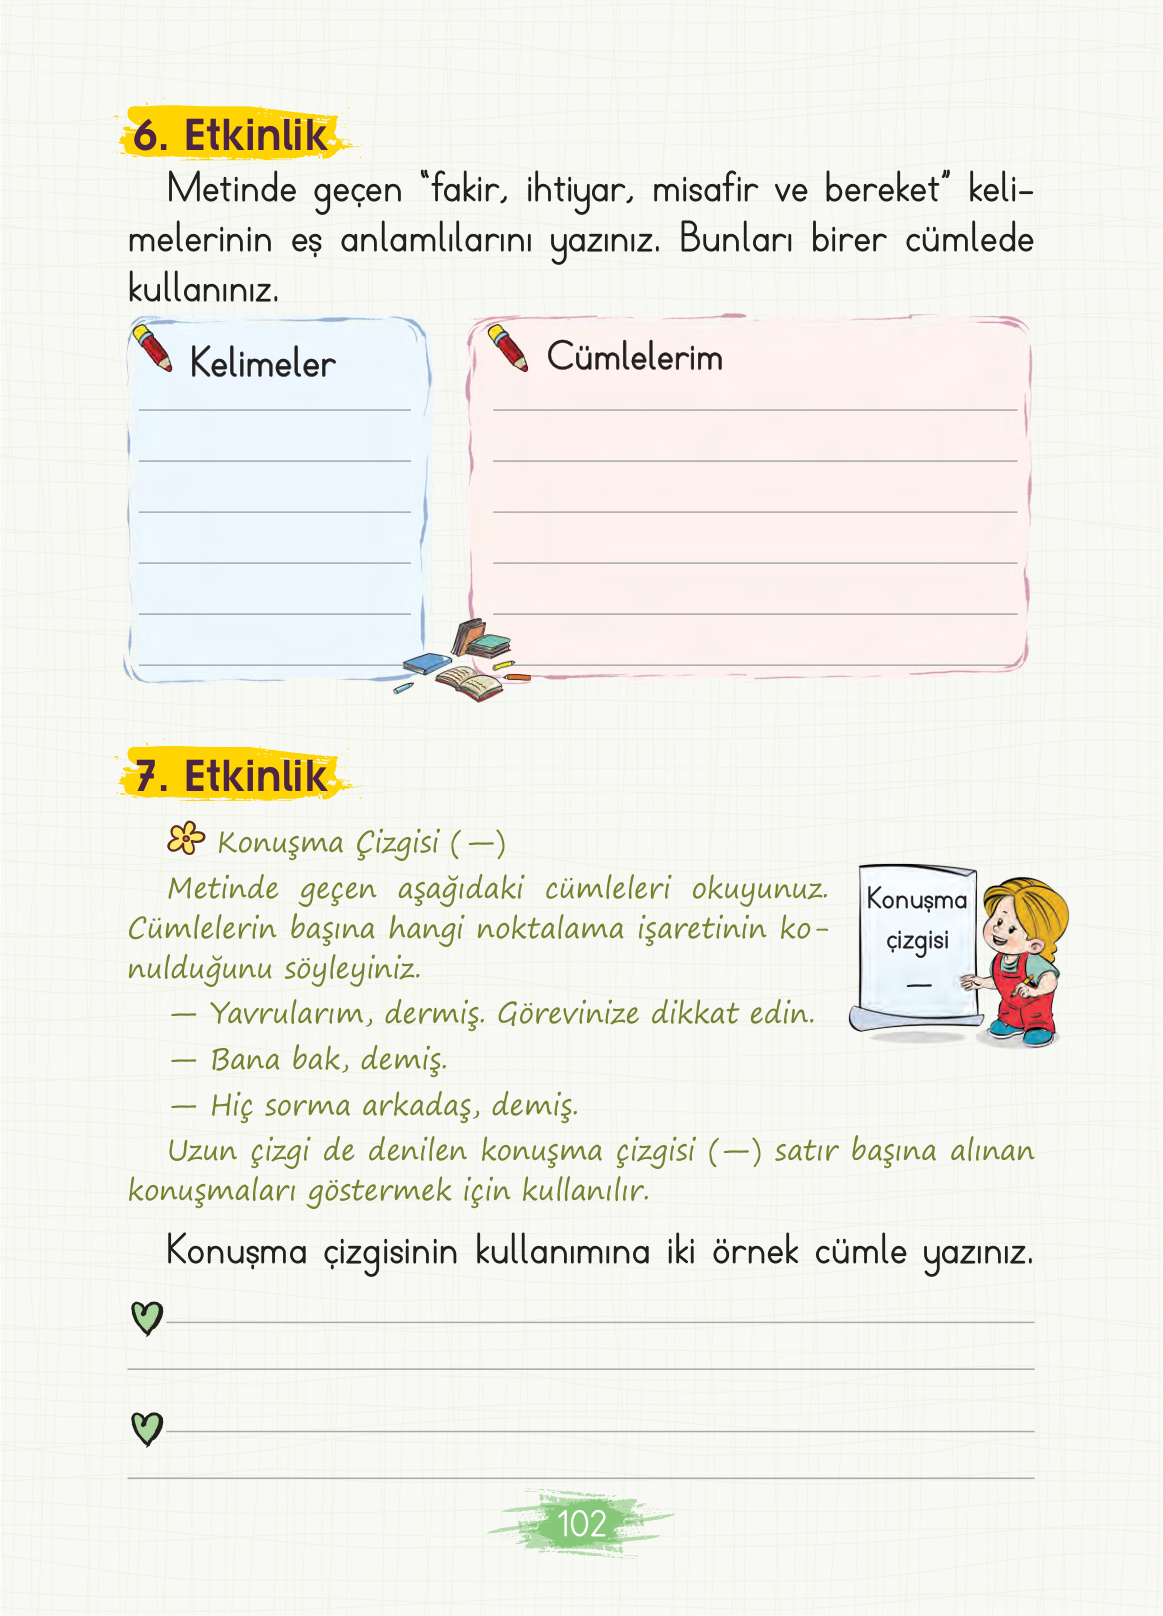 6. Etkinlik
Metinde geçen “fakir, ihtiyar, misafir ve bereket” keli-
melerinin eş anlamlılarını yazınız. Bunları birer cümlede
kullanınız.
Kelimeler
Cümlelerim
7. Etkinlik
Konuşma Çizgisi (—)
Metinde geçen aşağıdaki cümleleri okuyunuz.
Cümlelerin başına hangi noktalama işaretinin ko-
nulduğunu söyleyiniz.
— Yavrularım, dermiş. Görevinize dikkat edin.
— Bana bak, demiş.
— Hiç sorma arkadaş, demiş.
Konuşma
çizgisi
—
Uzun çizgi de denilen konuşma çizgisi (—) satır başına alınan
konuşmaları göstermek için kullanılır.
Konuşma çizgisinin kullanımına iki örnek cümle yazınız.
102